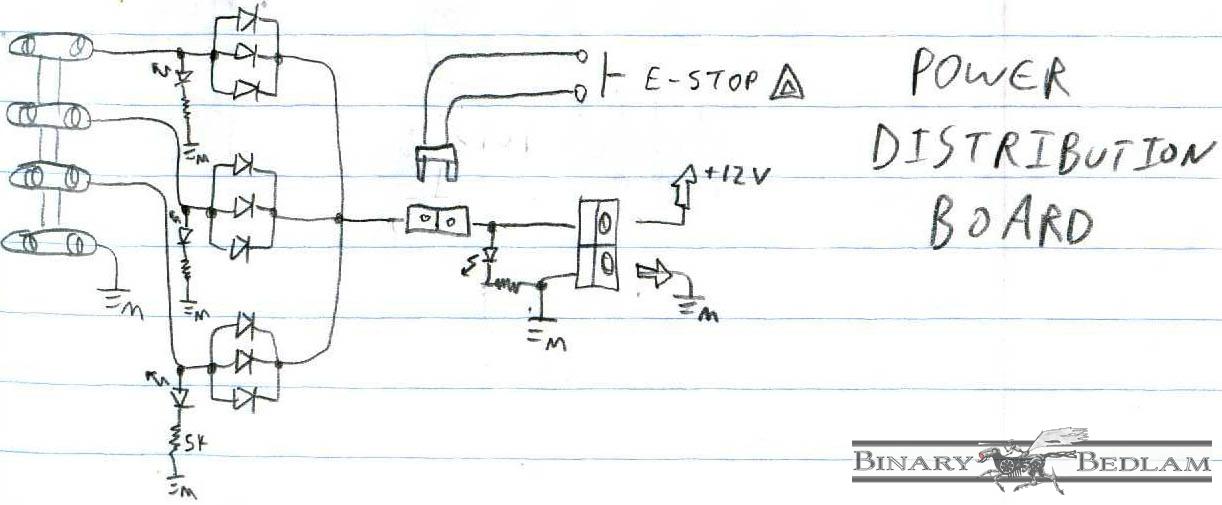 E-STOP
POWER
DISTRIBUTION
BOARD
+12V
M
M
M
M
M
M
5K
M
BINARY BEDLAM